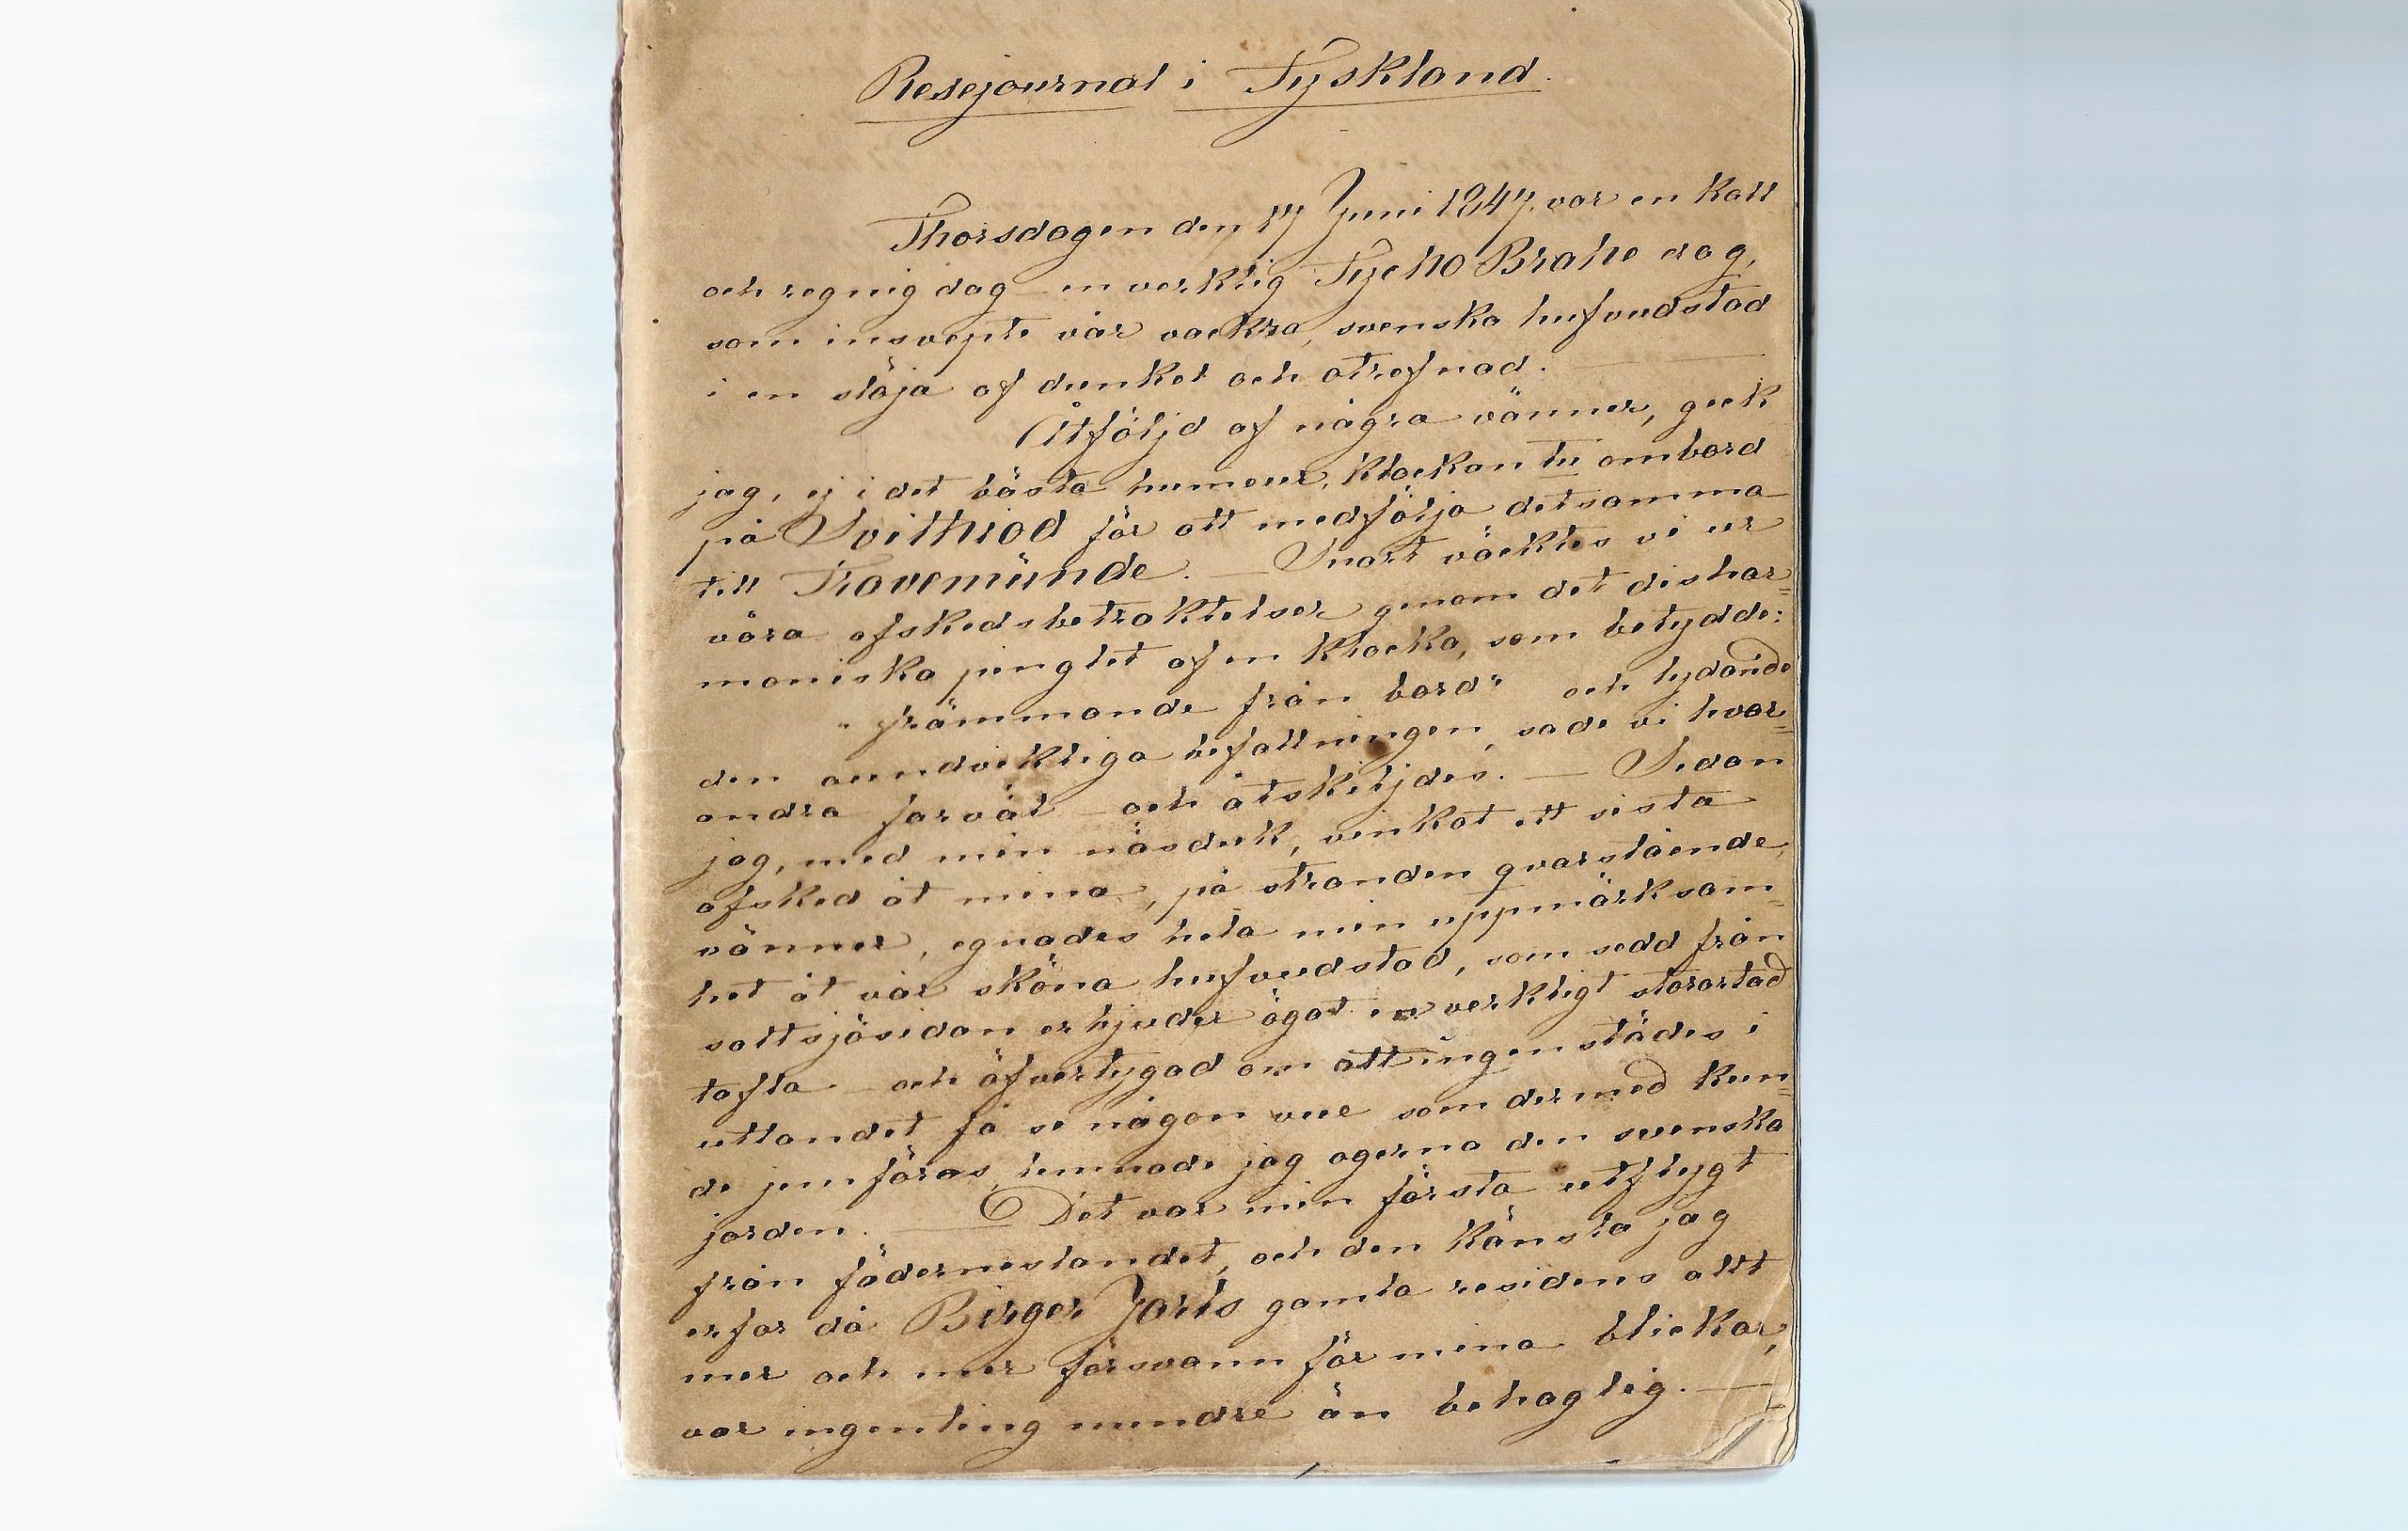 Resejournal i Tyskland.
Thorsdagen den 17 Juni 1847. var en kall
och regnig dag – en verklig Tycho Brahe dag,
som insvepte vår vackra, svenska hufvudstad
i en slöja af dunkel och otrefnad. —
Åtföljd af några vänner, geck
jag, ej i det bästa humeur, klockan tii ombord
på Svithiod för att medfölja detsamma
till Travemünde. — Snart väcktes vi ur
våra afskedsbetraktelser genom det dishar=
moniska pinglet af en klocka, som betydde:
"främmande från bord" och lydande
den oundvikliga befallningen, sade vi hvar=
andra farväl – och åtskiljdes. — Sedan
jag, med min näsduk, vinkat ett sista
afsked åt mina, på stranden qvarstående,
vänner, egnades hela min uppmärksam=
het åt vår sköna hufvudstad, som sedd från
saltsjösidan erbjuder ögat en verkligt storartad
tafla – och öfvertygad om att ingenstädes i
utlandet få se någon vue som dermed kun=
de jemföras, lemnade jag ogerna den svenska
jorden. — Det var min första utflygt
från fäderneslandet, och den känsla jag
erfor då Birger Jarls gamla residens allt
mer och mer försvann för mina blickar,
var ingenting mindre än behaglig. —